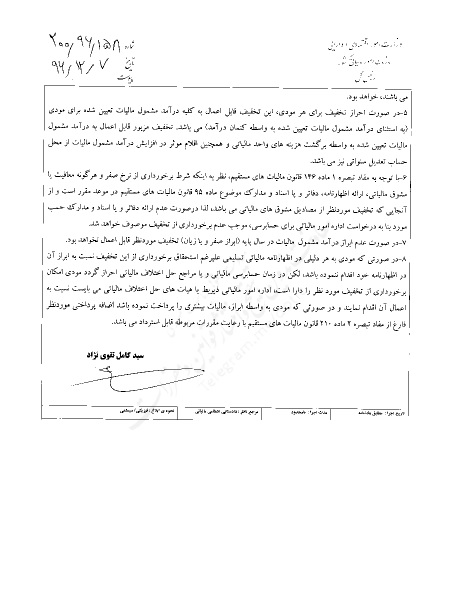 شماره ۲۰۰/۹۶/۱۵۸
تاریخ ۹۶/۳/۷
پیوست
وزارت امور اقتصادی و دارایی
رئیس کل
می باشند، خواهد بود.
۵-در صورت احراز تخفیف برای هر مودی، این تخفیف قابل اعمال به کلیه درآمد مشمول مالیات تعیین شده برای مودی
(به استثنای درآمد مشمول مالیات تعیین شده به واسطه کتمان درآمد) می باشد. تخفیف مزبور قابل اعمال به درآمد مشمول
مالیات تعیین شده به واسطه برگشت هزینه های واحد مالیاتی و همچنین اقلام موثر در افزایش درآمد مشمول مالیات از محل
حساب تعدیل سنواتی نیز می باشد.
۶-با توجه به مفاد تبصره ۱ ماده ۱۴۶ قانون مالیات های مستقیم، نظر به اینکه شرط برخورداری از نرخ صفر و هرگونه معافیت یا
مشوق مالیاتی، ارائه اظهارنامه، دفاتر و یا اسناد و مدارک موضوع ماده ۹۵ قانون مالیات های مستقیم در موعد مقرر است و از
آنجایی که تخفیف موردنظر از مصادیق مشوق های مالیاتی می باشد، لذا درصورت عدم ارائه دفاتر و یا اسناد و مدارک حسب
مورد بنا به درخواست اداره امور مالیاتی برای حسابرسی، موجب عدم برخورداری از تخفیف موصوف خواهد شد.
۷-در صورت عدم ابراز درآمد مشمول مالیات در سال پایه (ابراز صفر و یا زیان) تخفیف موردنظر قابل اعمال نخواهد بود.
۸-در صورتی که مودی به هر دلیلی در اظهارنامه مالیاتی تسلیمی علیرغم استحقاق برخورداری از این تخفیف نسبت به ابراز آن
در اظهارنامه خود اقدام ننموده باشد، لکن در زمان حسابرسی مالیاتی و یا مراجع حل اختلاف مالیاتی احراز گردد مودی امکان
برخورداری از تخفیف مورد نظر را دارا است، اداره امور مالیاتی ذیربط یا هیات های حل اختلاف مالیاتی می بایست نسبت به
اعمال آن اقدام نمایند و در صورتی که مودی به واسطه ابراز، مالیات بیشتری را پرداخت نموده باشد اضافه پرداختی موردنظر
فارغ از مفاد تبصره ۲ ماده ۲۱۰ قانون مالیات های مستقیم با رعایت مقررات مربوطه قابل استرداد می باشد.
سید کامل تقوی نژاد
تاریخ اجرا: مطابق بخشنامه
مدت اجرا: نامحدود
مرجع ناظر: دادستانی انتظامی مالیاتی
نحوه ی ابلاغ: فیزیکی/سیستمی